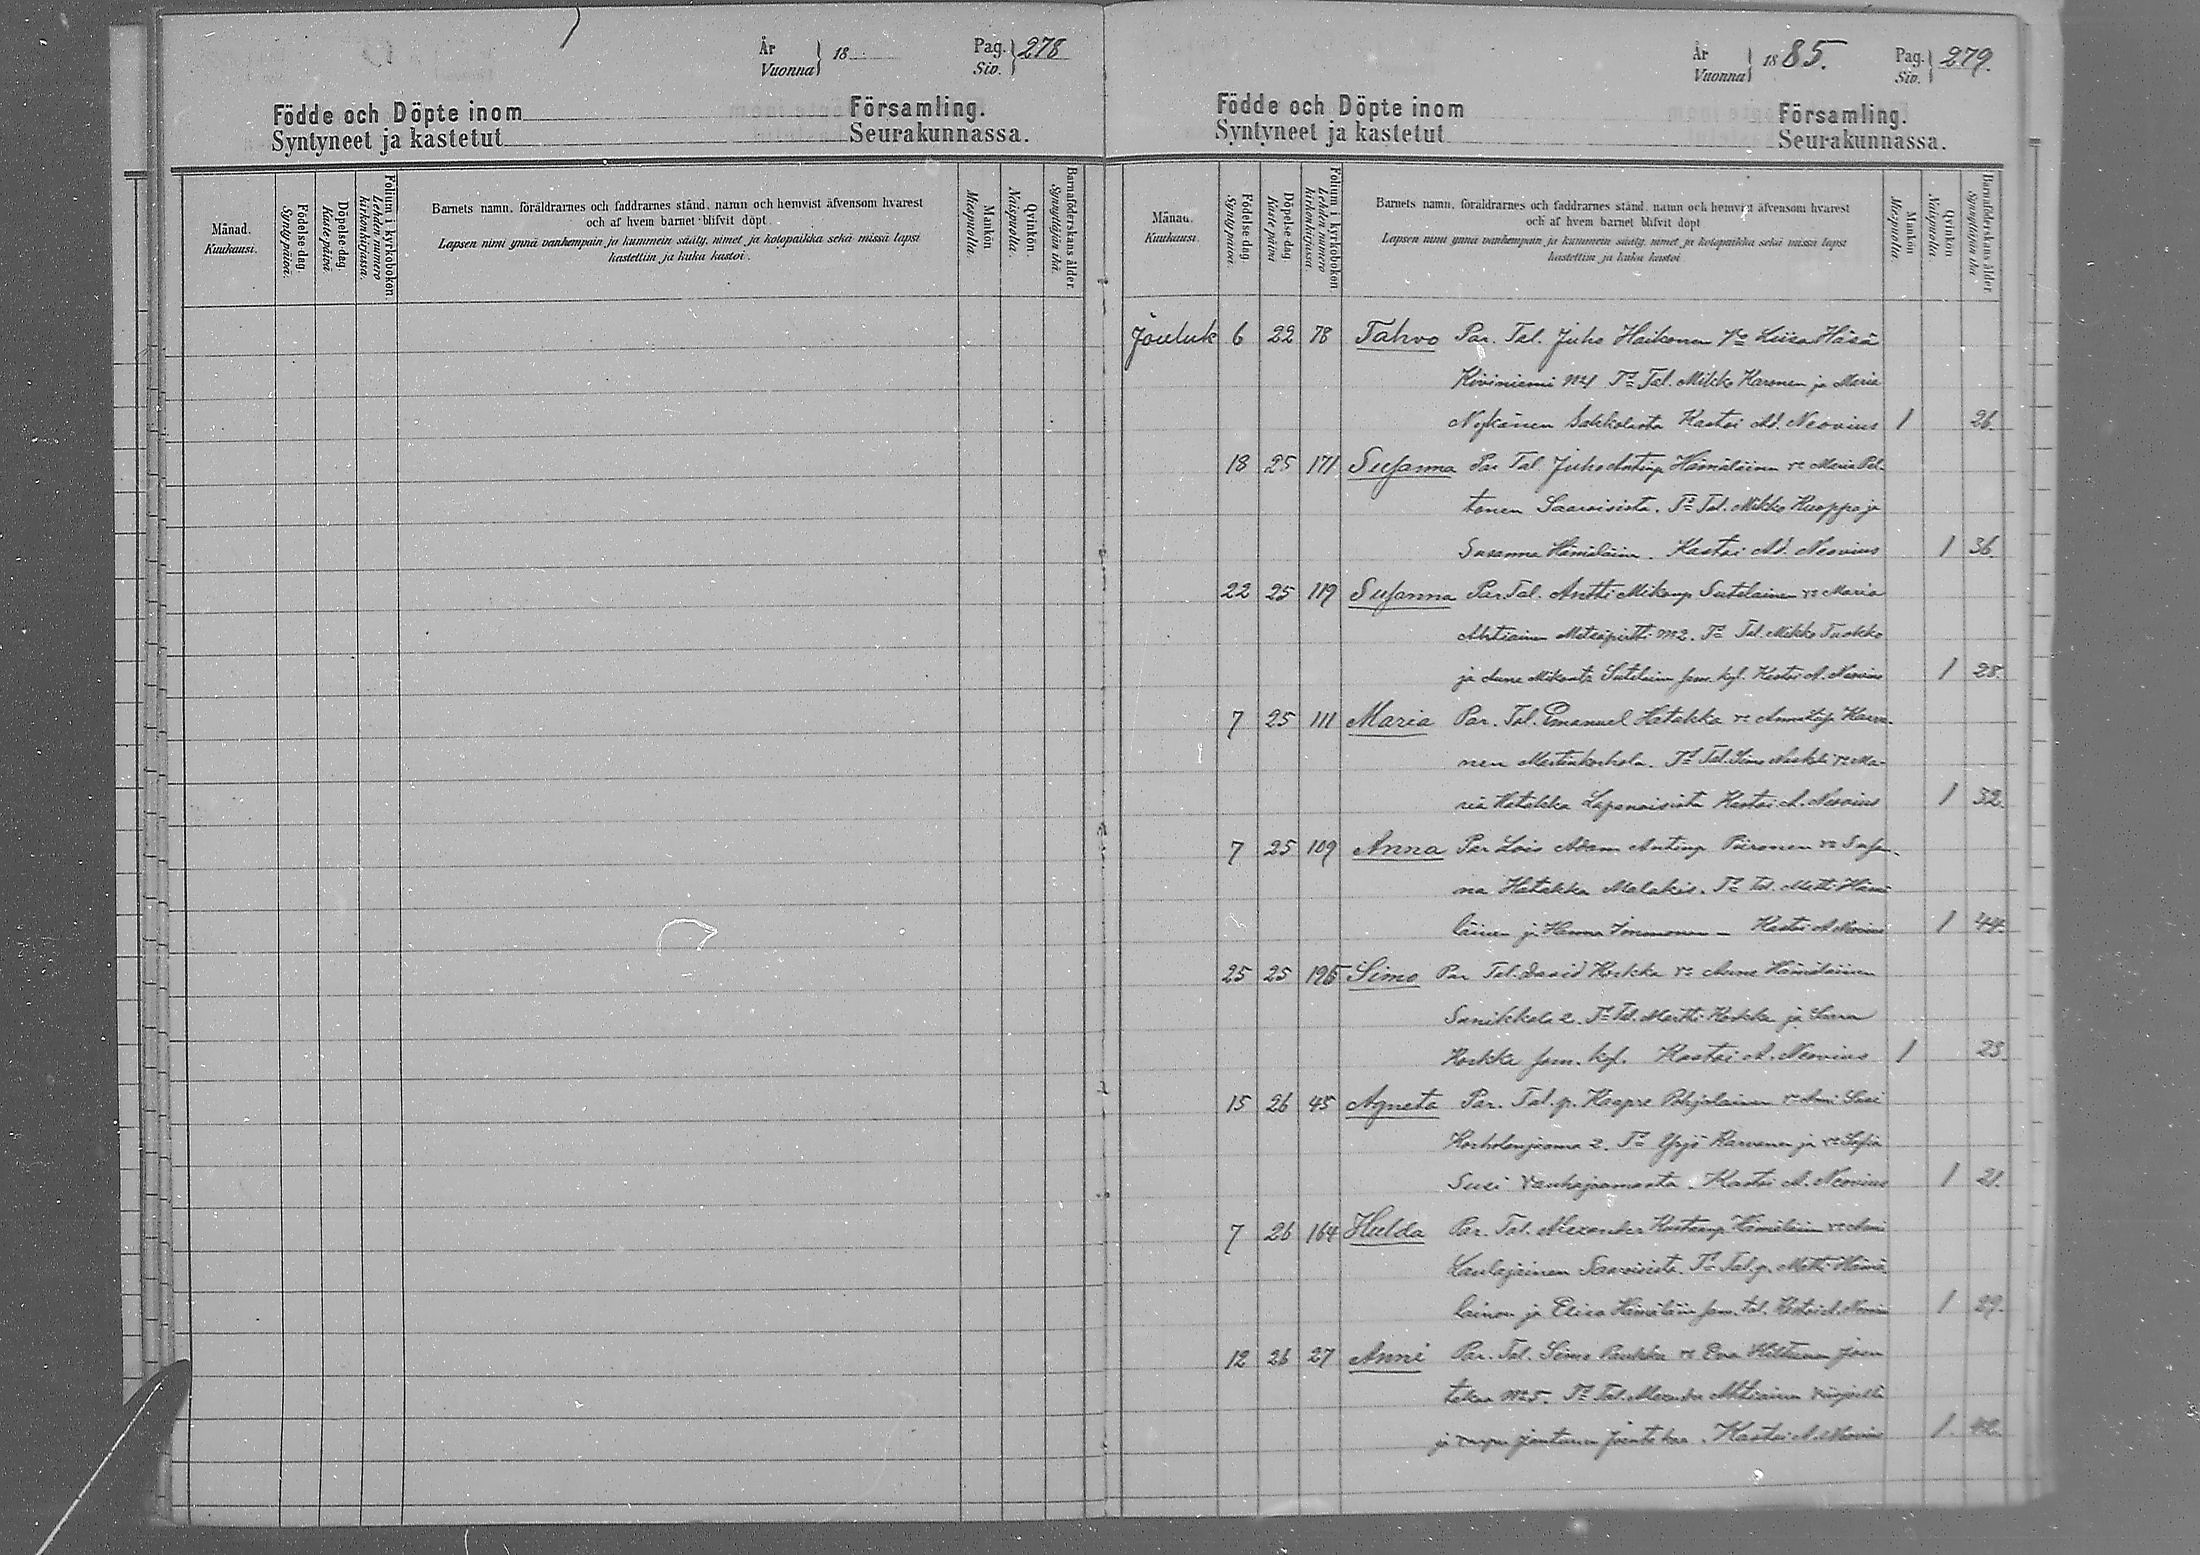 År
Vuonna
18
Pag.
Siv.
278
Födde och Döpte inom Församling.
Syntyneet ja kastetut Seurakunnassa.
Månad.
Kuukausi.
Födelse dag.
Synty päivä.
Döpelse dag.
Kaste päivä.
Folium i kyrkoboken.
Lehden numero kirkonkirjassa.
Barnets namn, föräldrarnes och faddrarnes stånd, namn och hemvist äfvensom hvarest
och af hvem barnet blifvit döpt.
Lapsen nimi ynnä vanhempain ja kummein sääty, nimet ja kotopaikka sekä missä lapsi
kastettiin ja kuka kastoi.
Mankön
Miespuolia.
Qvinkön.
Naispuolia.
Barnaföderskans ålder.
Synnyttäjän ikä.
År
Vuonna
1885.
Pag.
Siv.
279.
Födde och Döpte inom Församling.
Syntyneet ja kastetut Seurakunnassa.
Månad.
Kuukausi
Födelse dag.
Synty päivä.
Döpelse dag.
Kaste päivä
Folium i kyrkoboken
Lehden numero kirkonkirjassa
Barnets namn, föräldrarnes och faddrarnes stånd, namn och hemvist äfvensom hvarest
och af hvem barnet blifvit döpt
Lapsen nimi ynnä vanhempain ja kummein sääty, nimet ja kotopaikka sekä missä lapsi
kastettiin ja kuka kastoi
Mankön
Miespuolia.
Qvinkön
Naispuolia
Barnaföderskans ålder.
Synnyttäjän ikä
Jouluk 6 22 78 Tahvo Par. Tal. Juho Haikonen Vo Liisa Häsä
Kiviniemi No 4 Td Tal. Mikko Karonen ja Maria
Nykänen Sakkolasta Kastoi Ad. Neovius 1 26.
18 25 171 Susanna Par Tal. Juho Antinp Hämäläinen vo Maria Pel-
tonen Saaroisista. Td Tal. Mikko Kuoppa ja
Susanna Hämäläin. Kastoi Ad. Neovius 1 36.
22 25 119 Susanna Par Tal. Antti Mikonp Sutelainen vo Maria
Ahtiainen Metsäpirtti No 2. Td Tal. Mikko Tuokko
ja Anna Mikont Sutelain sam. kyl. Kastoi A. Neovius 1 28.
7 25 111 Maria Par. Tal. Emanuel Hatakka vo
nen Td Tal. Simo vo Ma-
ria Hatakka Lapanaisista Kastoi A. Neovius 1 32.
7 25 109 Anna Par Lois Adam Antinp Piironen vo Susan-
na Hatakka Td Tal. Matti Hämä
läinen ja Hanna Immonen – Kastoi A Neovius 1 44.
25 25 195 Simo Par Tal. David Korkka vo Anna Hämäläinen
2. Td Tal. Martti Korkka ja
Korkka sam. kyl. Kastoi A. Neovius 1 23.
15 26 45 Agneta Par. Tal. p. Kaapre Pohjolainen vo Anni Susi
2. Td Yrjö ja vo Sofia
Susi Vanhajaamasta. Kastoi A. Neovius 1 21.
7 26 164 Hulda Par. Tal. Alexander Hämäläin vo Anni
Laulajainen Saaroisista. Td Tal. p. Matti Hämä
läinen ja Elisa Hämäläin sam. tal. Kastoi A. Neovius 1 29.
12 26 27 Anni Par. Tal. Simo Paukku vo Eva Hiltunen Joen
takaa No 5. Td Tal. Alexander Ahtiainen
ja Jantunen Joentakaa. Kastoi A. Neovius 1. 42.